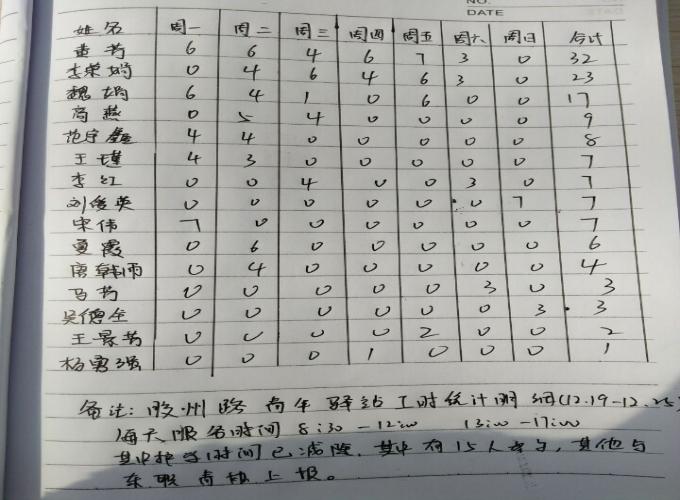 NO.
DATE
姓名 周一 周二 周三 周四 周五 周六 周日 合计
黄芳 6 6 4 6 7 3 0 32
李荣娟 0 4 6 4 6 3 0 23
魏娟 6 4 1 0 6 0 0 17
高燕 0 5 4 0 0 0 0 9
范宇鑫 4 4 0 0 0 0 0 8
王瑾 4 3 0 0 0 0 0 7
李红 0 0 4 0 0 3 0 7
刘俊英 0 0 0 0 0 0 7 7
宋伟 7 0 0 0 0 0 0 7
夏霞 0 6 0 0 0 0 0 6
唐韩雨 0 4 0 0 0 0 0 4
马芳 0 0 0 0 0 3 0 3
吴德全 0 0 0 0 0 0 3 3
王景芳 0 0 0 0 2 0 0 2
杨勇强 0 0 0 1 0 0 0 1
备注: 胶州路青年驿站工时统计明细(12.19-12.25)
每天服务时间 8:30-12:00 13:00-17:00
其中 时间已减除, 其中有15人 , 其他与
东 青 上报。